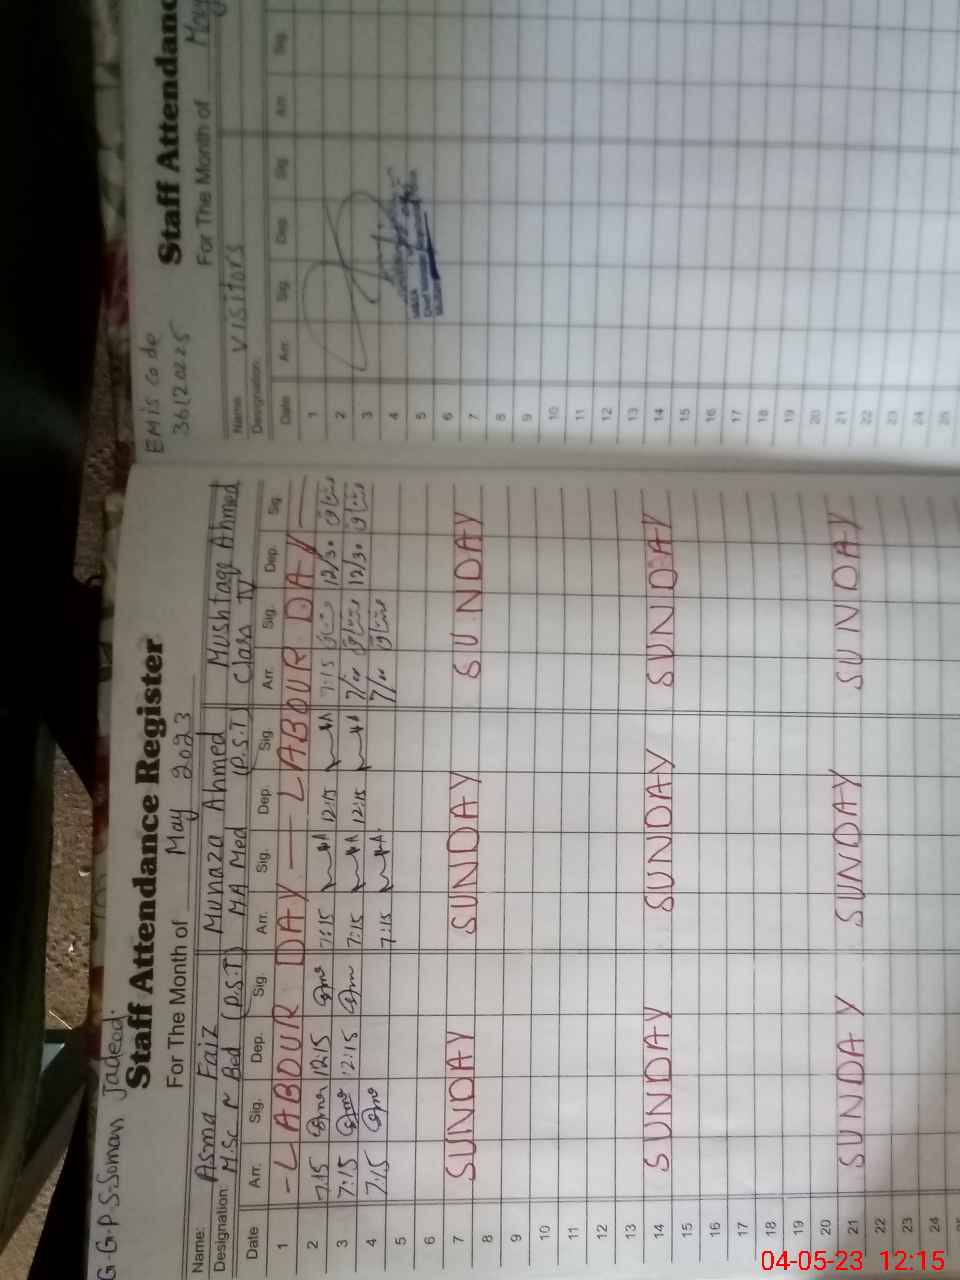 G.G.P.S. Soman Jadeed.
Staff Attendance Register
For The Month of May 2023
Name: Asma Faiz Munaza Ahmed Mushtaq Ahmed
Designation: M.Sc Bed (P.S.T) MA Med (P.S.T) Class IV
Date Arr. Sig. Dep. Sig. Arr. Sig. Dep. Sig. Arr. Sig. Dep. Sig.
1 - LABOUR DAY - LABOUR DAY -
2 7:15 12:15 7:15 12:15 7:15 12/30
3 7:15 12:15 7:15 12:15 12/30
4 7:15 7:15
5
6
7 SUNDAY SUNDAY SUNDAY
8
9
10
11
12
13
14 SUNDAY SUNDAY SUNDAY
15
16
17
18
19
20
21 SUNDAY SUNDAY SUNDAY
22
23
24
EMIS Code
36120225
Staff Attendanc
For The Month of May
Name VISITORS
Designation:
Date Arr. Sig. Dep. Sig. Arr. Sig.
1
2
3
4
5
6
7
8
9
10
11
12
13
14
15
16
17
18
19
20
21
22
23
24
25
04-05-23 12:15